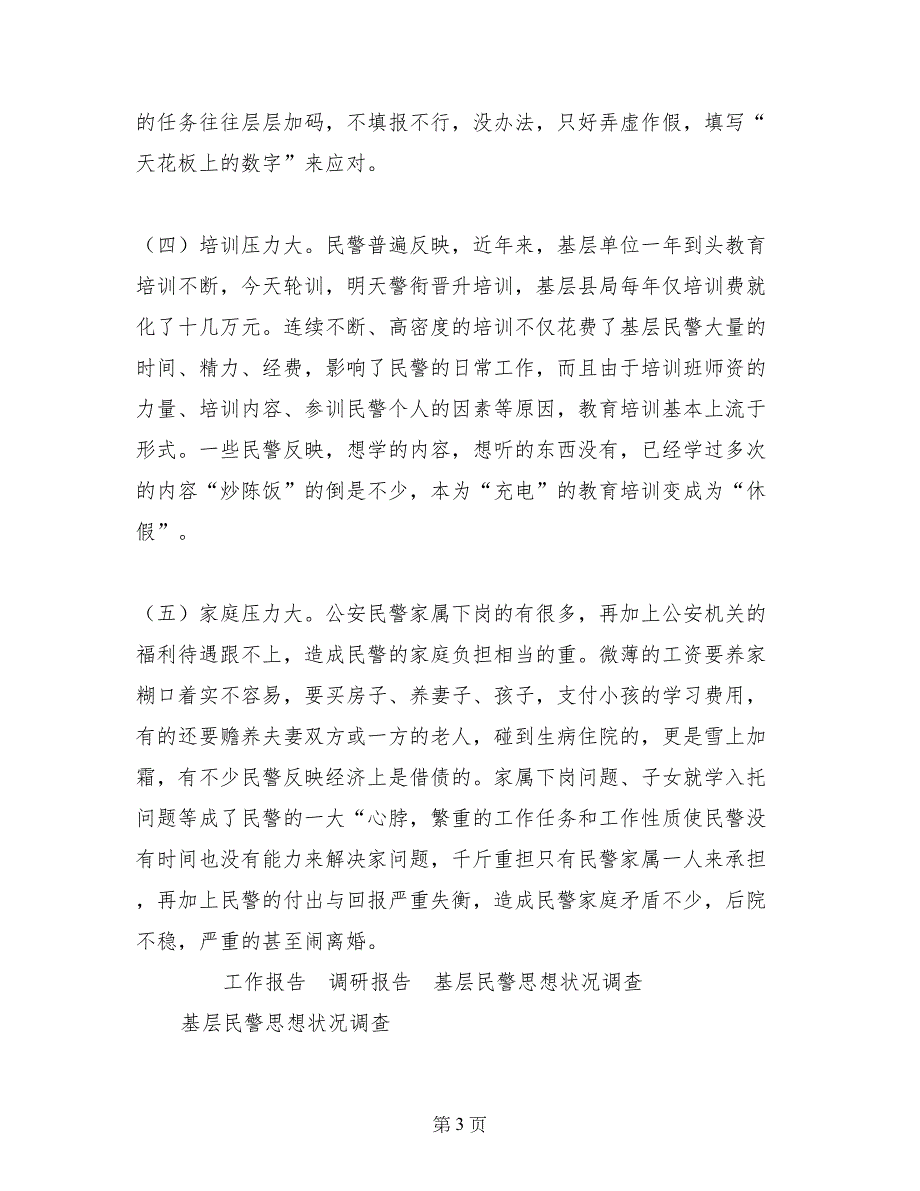 的任务往往层层加码，不填报不行，没办法，只好弄虚作假，填写“
天花板上的数字”来应对。
（四）培训压力大。民警普遍反映，近年来，基层单位一年到头教育
培训不断，今天轮训，明天警衔晋升培训，基层县局每年仅培训费就
化了十几万元。连续不断、高密度的培训不仅花费了基层民警大量的
时间、精力、经费，影响了民警的日常工作，而且由于培训班师资的
力量、培训内容、参训民警个人的因素等原因，教育培训基本上流于
形式。一些民警反映，想学的内容，想听的东西没有，已经学过多次
的内容“炒陈饭”的倒是不少，本为“充电”的教育培训变成为“休
假”。
（五）家庭压力大。公安民警家属下岗的有很多，再加上公安机关的
福利待遇跟不上，造成民警的家庭负担相当的重。微薄的工资要养家
糊口着实不容易，要买房子、养妻子、孩子，支付小孩的学习费用，
有的还要赡养夫妻双方或一方的老人，碰到生病住院的，更是雪上加
霜，有不少民警反映经济上是借债的。家属下岗问题、子女就学入托
问题等成了民警的一大“心脖，繁重的工作任务和工作性质使民警没
有时间也没有能力来解决家问题，千斤重担只有民警家属一人来承担
，再加上民警的付出与回报严重失衡，造成民警家庭矛盾不少，后院
不稳，严重的甚至闹离婚。
工作报告　调研报告　基层民警思想状况调查
基层民警思想状况调查
第 3 页